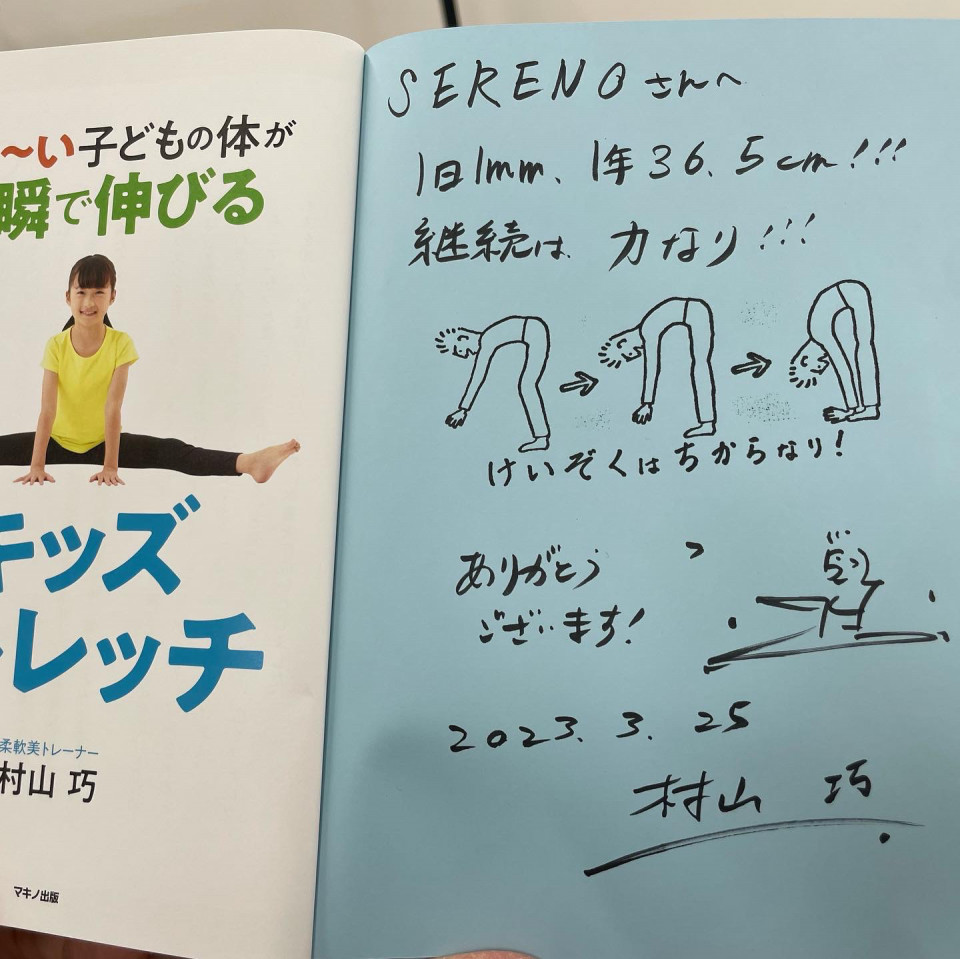 〜い子どもの体が
瞬で伸びる
キッズ
トレッチ
柔軟美トレーナー
村山 巧
マキノ出版
SERENOさんへ
1日1mm、1年36.5cm!!!
継続は 力なり!!!
けいぞくはちからなり!
ありがとう
ございます!
2023.3.25
村山 巧